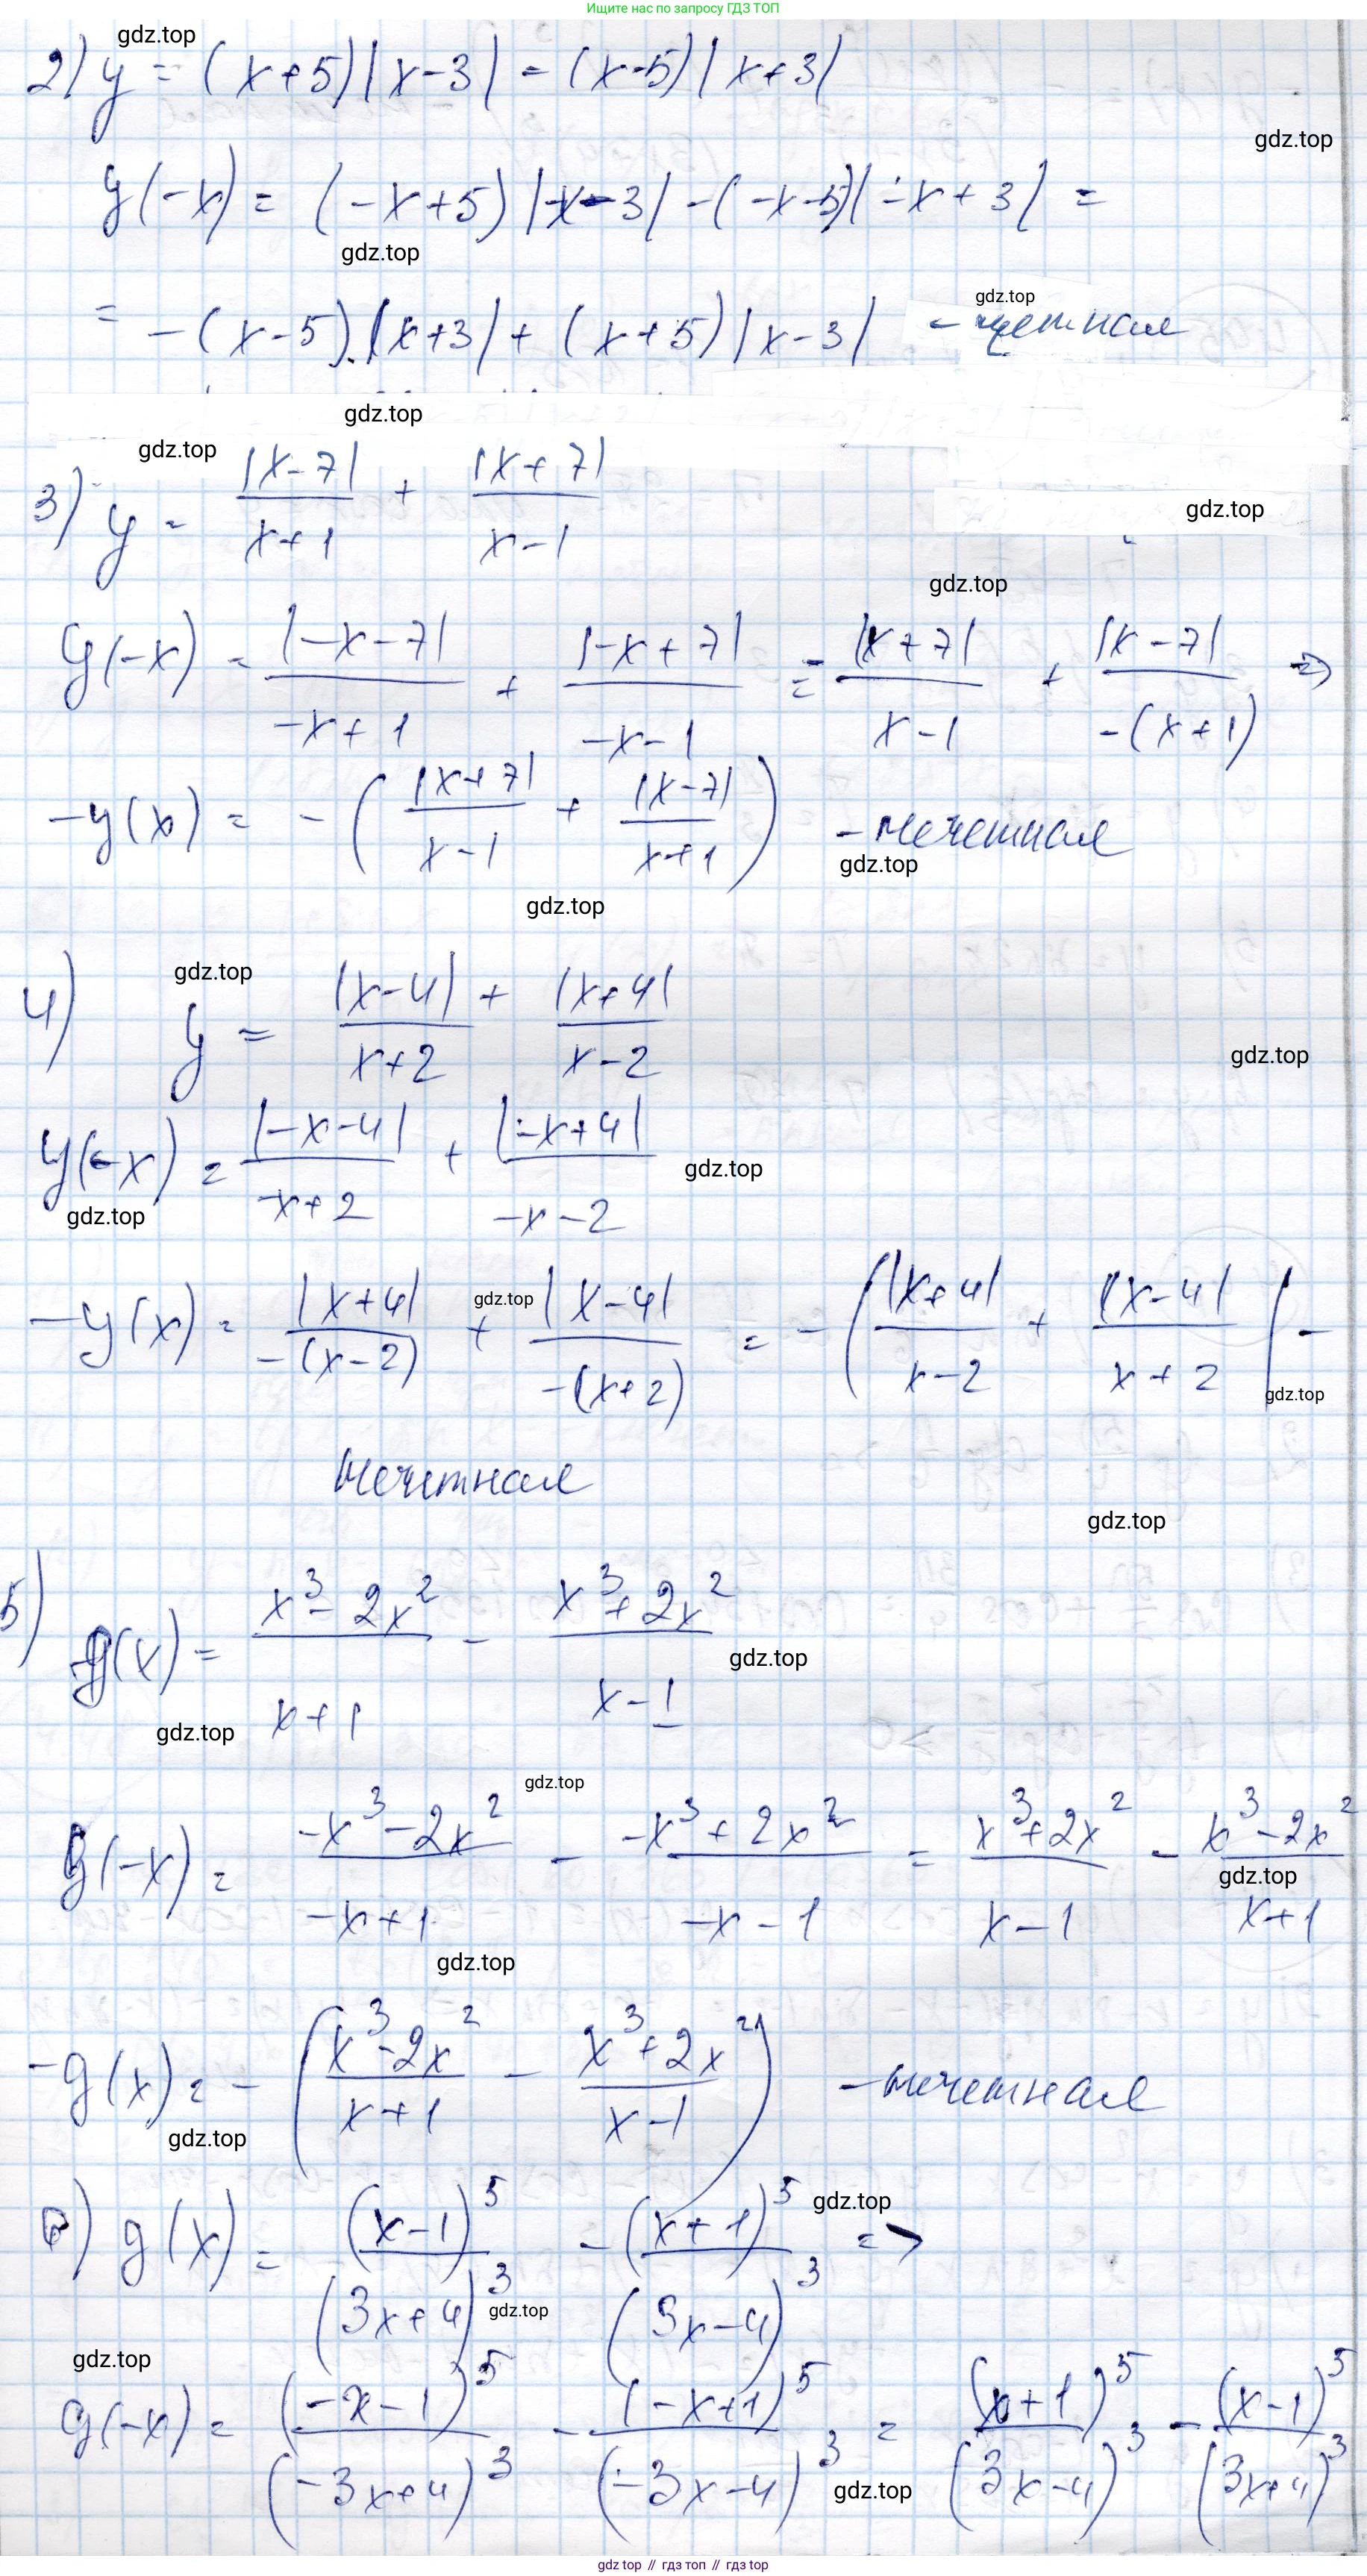 Ищите нас по запросу ГДЗ ТОП
gdz.top
2) y = (x+5)|x-3| - (x-5)|x+3|
gdz.top
y(-x) = (-x+5)|-x-3| - (-x-5)|-x+3| =
gdz.top
gdz.top
= -(x-5)·|x+3| + (x+5)|x-3| - четная
gdz.top
gdz.top
3) y = |x-7|/(x+1) + |x+7|/(x-1)
gdz.top
gdz.top
y(-x) = |-x-7|/(-x+1) + |-x+7|/(-x-1) = = |x+7|/(x-1) + |x-7|/(-(x+1)) =>
-y(x) = -(|x+7|/(x-1) + |x-7|/(x+1)) - нечетная
gdz.top
gdz.top
gdz.top
4) y = |x-4|/(x+2) + |x+4|/(x-2)
gdz.top
y(-x) = |-x-4|/(-x+2) + |-x+4|/(-x-2)
gdz.top
gdz.top
-y(x) = |x+4|/(-(x-2)) + |x-4|/(-(x+2)) = -(|x+4|/(x-2) + |x-4|/(x+2)) -
gdz.top
gdz.top
нечетная
gdz.top
5) g(x) = (x³-2x²)/(x+1) - (x³+2x²)/(x-1)
gdz.top
gdz.top
gdz.top
g(-x) = (-x³-2x²)/(-x+1) - (-x³+2x²)/(-x-1) = (x³+2x²)/(x-1) - (x³-2x²)/(x+1)
gdz.top
gdz.top
-g(x) = -((x³-2x²)/(x+1) - (x³+2x²)/(x-1)) - нечетная
gdz.top
gdz.top
6) g(x) = (x-1)⁵/(3x+4)³ - (x+1)⁵/(3x-4)³ =>
gdz.top
gdz.top
g(-x) = (-x-1)⁵/(-3x+4)³ - (-x+1)⁵/(-3x-4)³ = (x+1)⁵/(3x-4)³ - (x-1)⁵/(3x+4)³
gdz.top
gdz top // гдз топ // gdz top